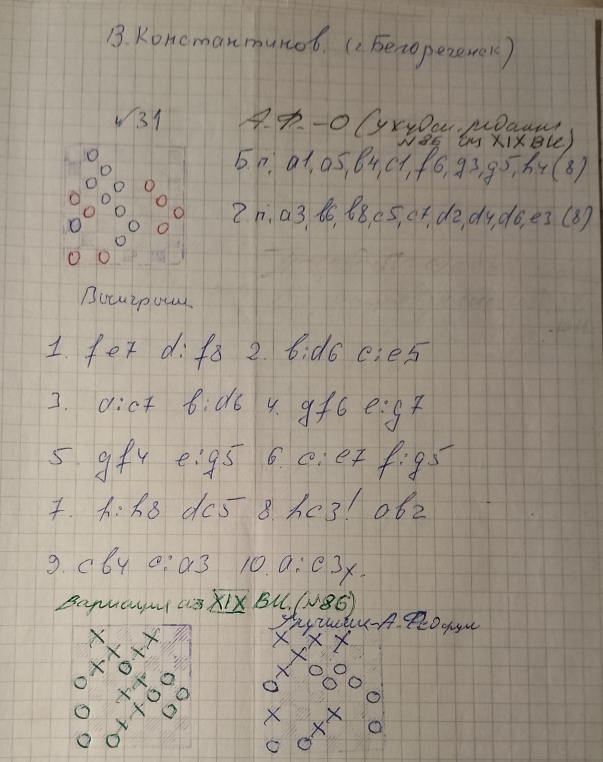 В. Константинов. (г. Белореченск)
№31
А.Ф.-О (ухудш. редакция
№86 из XIX ВК)
Б.п; а1, а5, в4, с1, f6, g3, g5, h4 (8)
Ч.п; а3, в6, в8, с5, с7, d2, d4, d6, е3 (8)
Выигрыш
1. fe7 d:f8 2. b:d6 c:e5
3. a:c7 b:d6 4. gf6 e:g7
5 gf4 e:g5 6. c:e7 f:g5
7. h:h8 dc5 8. hc3! ab2
9. cb4 c:a3 10. a:c3x.
Вариация из XIX ВК. (№86)
А.Ф.